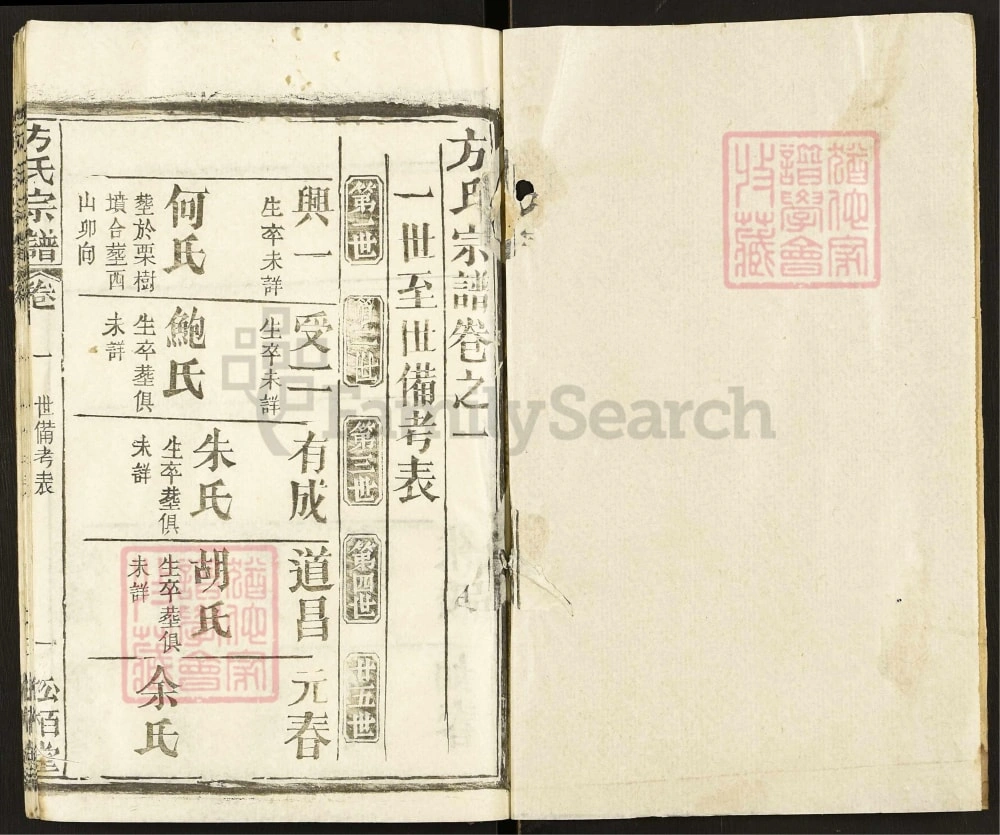 方氏宗譜卷之一
一世至世備考表
第一世
興一
生卒未詳
何氏
塟於栗樹
墳合塟西
山卯向
第二世
受二
生卒未詳
鮑氏
生卒塟俱
未詳
第三世
有成
朱氏
生卒塟俱
未詳
第四世
道昌
胡氏
生卒塟俱
未詳
廿五世
元春
余氏
方氏宗譜
卷一
世備考表
一
松栢堂
猶他家
譜學會
收藏
猶他家
譜學會
收藏
FamilySearch